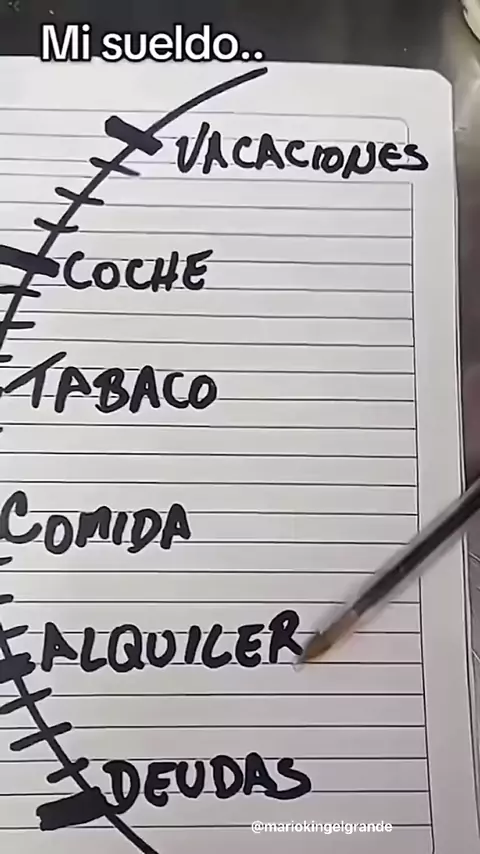 Mi sueldo..
VACACIONES
COCHE
TABACO
COMIDA
ALQUILER
DEUDAS
@mariokingelgrande